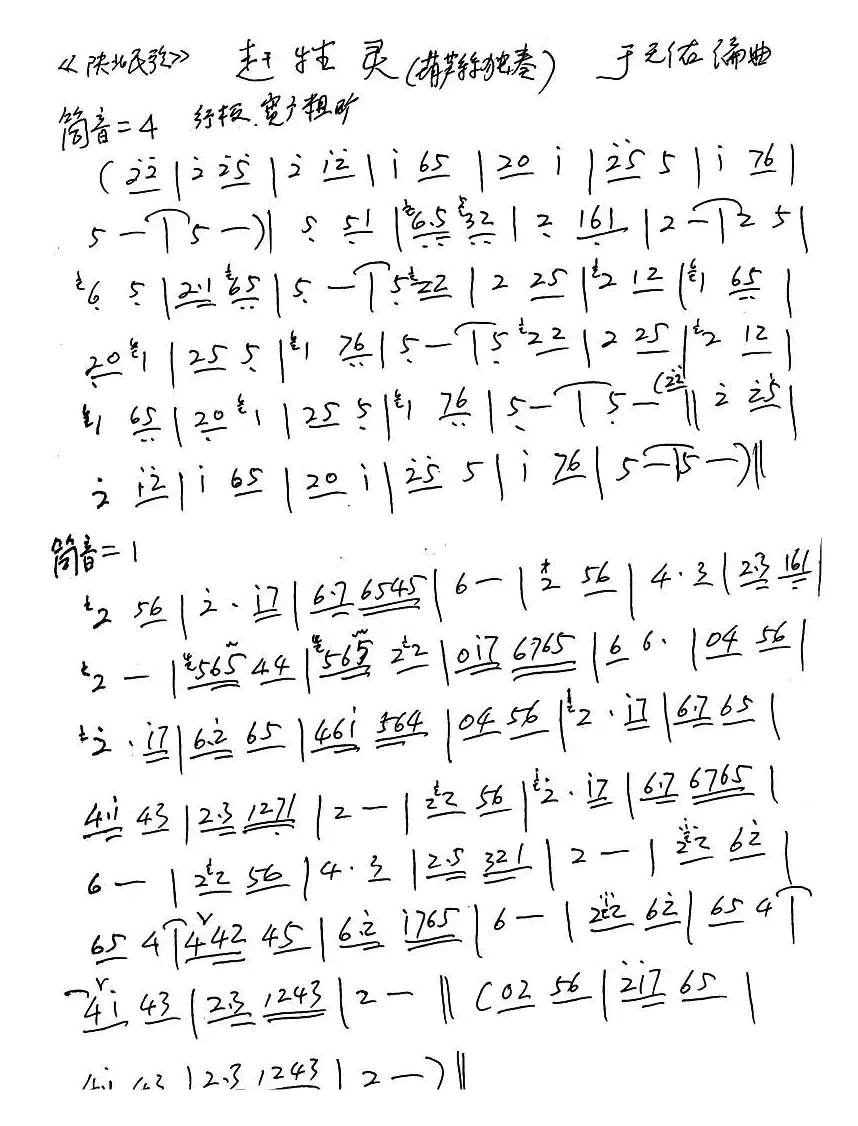 《陕北民歌》 赶牲灵(葫芦丝独奏) 于元佑编曲
筒音=4 行板 宽广粗旷
(2̇2̇ | 2̇ 2̇5̇ | 2̇ 1̇2̇ | 1̇ 65 | 20 1̇ | 2̇5̇ 5 | 1̇ 76 |
5 — | 5 —) | 5 51 | 26.5 532 | 2 161 | 2 — | 2 5 |
6 5 | 2.1 65 | 5 — | 5 22 | 2 25 | 2 12 | 1 65 |
20 1 | 25 5 | 1 76 | 5 — | 5 22 | 2 25 | 2 12 |
1 65 | 20 1 | 25 5 | 1 76 | 5 — | 5 — (2̇2̇ ‖ 2̇ 2̇5̇ |
2̇ 1̇2̇ | 1̇ 65 | 20 1̇ | 2̇5̇ 5 | 1̇ 76 | 5 — | 5 —) ‖
筒音=1
2 56 | 2̇ · 1̇7 | 6.7 6545 | 6 — | 2 56 | 4 · 3 | 2.3 161 |
2 — | 565 44 | 565 22 | 01̇7 6765 | 6 6 · | 04 56 |
2̇ · 1̇7 | 6.2̇ 65 | 461̇ 564 | 04 56 | 2 · 1̇7 | 6.7 65 |
4.1̇ 43 | 2.3 1271 | 2 — | 22 56 | 2̇ · 1̇7 | 6.7 6765 |
6 — | 22 56 | 4 · 3 | 2.5 321 | 2 — | 22 62̇ |
65 4 | 442 45 | 6.2̇ 1̇765 | 6 — | 22 62̇ | 65 4 |
41̇ 43 | 2.3 1243 | 2 — ‖ (02 56 | 2̇1̇7 65 |
41̇ 43 | 2.3 1243 | 2 —) ‖